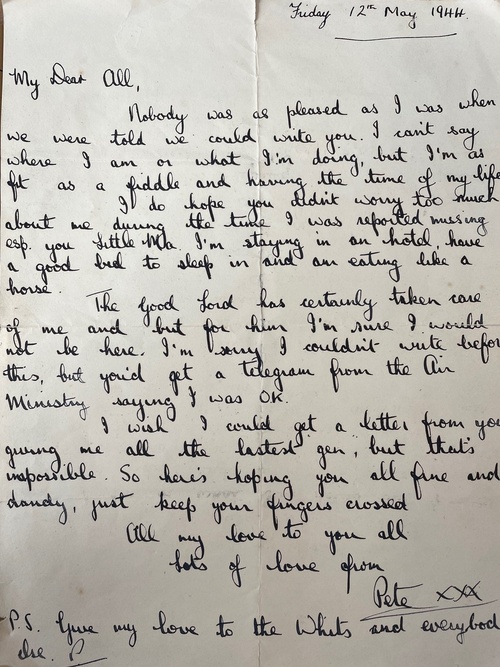 Friday 12th May 1944.
My Dear All,
Nobody was as pleased as I was when
we were told we could write you. I can't say
where I am or what I'm doing, but I'm as
fit as a fiddle and having the time of my life
I do hope you didn't worry too much
about me during the time I was reported missing
esp. you little Ma. I'm staying in an hotel, have
a good bed to sleep in and am eating like a
horse.
The Good Lord has certainly taken care
of me and but for him I'm sure I would
not be here. I'm sorry I couldn't write befor
this, but you'd get a telegram from the Air
Ministry saying I was OK.
I wish I could get a letter from you
giving me all the lastest gen, but that's
impossible. So here's hoping you all fine and
dandy, just keep your fingers crossed
All my love to you all
Lots of love from
Pete xxx
P.S. Give my love to the Whits and everybod
else. P